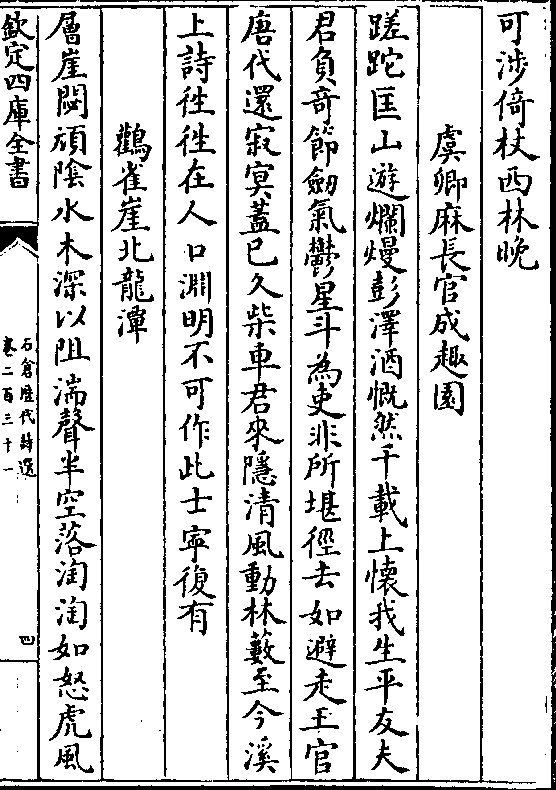 可涉倚杖西林晚
虞卿麻長官成趣園
蹉跎匡山遊爛熳彭澤酒慨然千載上懷我生平友夫
君負竒節劒氣鬱星斗為吏非所堪徑去如避走王官
唐代還寂寞蓋已久柴車君來隱清風動林籔至今溪
上詩徃徃在人口淵明不可作此士寜復有
鸛雀崖北龍潭
層崖閟頑陰水木深以阻湍聲半空落洶洶如怒虎風
欽定四庫全書
石倉歴代詩選
卷二百三十一
四